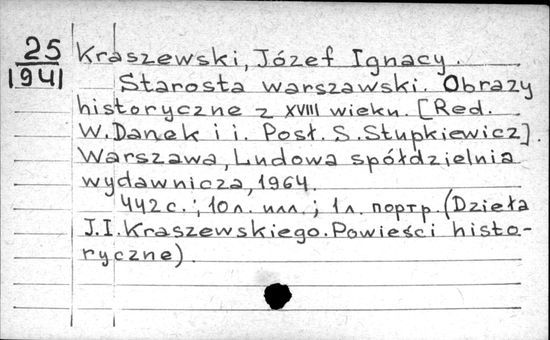 25
1941
Kraszewski, Józef Ignacy.
Starosta warszawski. Obrazy
historyczne z XVIII wieku. [Red.
W. Danek i i. Posł. S. Stupkiewicz].
Warszawa, Ludowa spółdzielnia
wydawnicza, 1964.
442 с.; 10 л. илл.; 1 л. портр. (Dzieła
J. I. Kraszewskiego. Powieści histo-
ryczne).